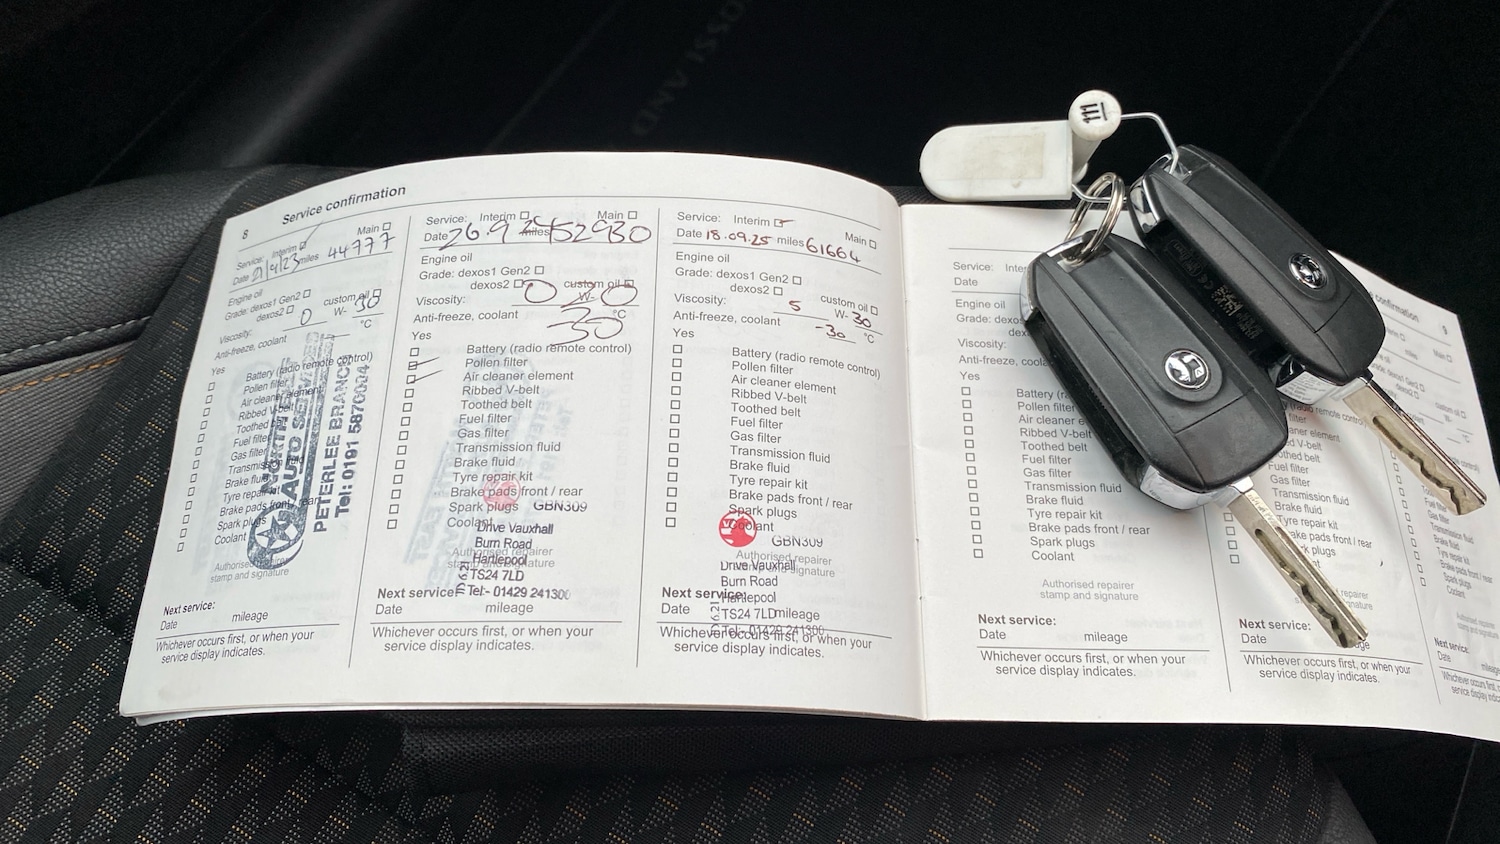 8
Service confirmation
Service: Interim Main
Date 21/9/23 miles 44777
Engine oil
Grade: dexos1 Gen2
dexos2 custom oil
Viscosity: 0 W- 30
Anti-freeze, coolant °C
Yes
Battery (radio remote control)
Pollen filter
Air cleaner element
Ribbed V-belt
Toothed b
Fuel filter
Gas filter
Transmission fluid
Brake fluid
Tyre repair kit
Brake pads front / rear
Spark plugs
Coolant
NORTH
AUTO SER
PETERLEE BRANCH
Tel: 0191 587000
Authorised
stamp and signature
Next service:
Date mileage
Whichever occurs first, or when your
service display indicates.
Service: Interim Main
Date 26.9 miles 52930
Engine oil
Grade: dexos1 Gen2
dexos2 custom oil
Viscosity: 0 W- 20
Anti-freeze, coolant 30 °C
Yes
Battery (radio remote control)
Pollen filter
Air cleaner element
Ribbed V-belt
Toothed belt
Fuel filter
Gas filter
Transmission fluid
Brake fluid
Tyre repair kit
Brake pads front / rear
Spark plugs GBN309
Coolant
Drive Vauxhall
Burn Road
Hartlepool
TS24 7LD
Tel:- 01429 241300
Authorised repairer
stamp and signature
Next service:
Date mileage
Whichever occurs first, or when your
service display indicates.
Service: Interim Main
Date 18.09.25 miles 61664
Engine oil
Grade: dexos1 Gen2
dexos2 custom oil
Viscosity: 5 W- 30
Anti-freeze, coolant -30 °C
Yes
Battery (radio remote control)
Pollen filter
Air cleaner element
Ribbed V-belt
Toothed belt
Fuel filter
Gas filter
Transmission fluid
Brake fluid
Tyre repair kit
Brake pads front / rear
Spark plugs
Coolant
GBN309
Authorised repairer
stamp and signature
Drive Vauxhall
Burn Road
Hartlepool
TS24 7LD
Tel:- 01429 241300
Next service:
Date mileage
Whichever occurs first, or when your
service display indicates.
Service: Inte
Date
Engine oil
Grade: dexos
Viscosity:
Anti-freeze, coola
Yes
Battery (ra
Pollen filter
Air cleaner e
Ribbed V-belt
Toothed belt
Fuel filter
Gas filter
Transmission fluid
Brake fluid
Tyre repair kit
Brake pads front / rear
Spark plugs
Coolant
Authorised repairer
stamp and signature
Next service:
Date mileage
Whichever occurs first, or when your
service display indicates.
Fuel filter
Gas filter
Transmission fluid
Brake fluid
Tyre repair kit
Brake pads front / rear
Next service:
Date
Whichever occurs first, or when your
service display indicates.
confirmation 9
Next service:
Date mileage
Whichever occurs first,
service display indicates.
111